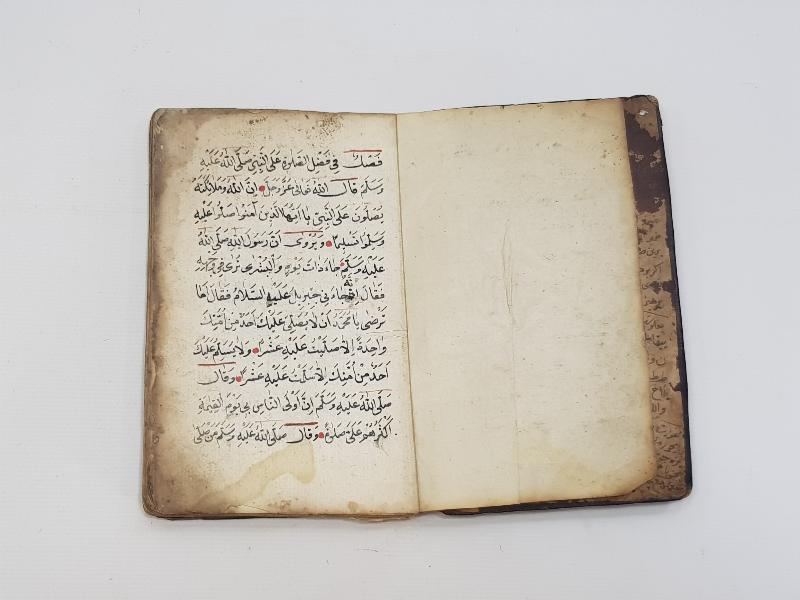 فَصْلٌ فِي فَضْلِ الصَّلٰوةِ عَلَى النَّبِيِّ صَلَّى اللهُ عَلَيْهِ
وَسَلَّمَ قَالَ اللهُ تَعَالَى عَزَّ وَجَلَّ اِنَّ اللهَ وَمَلَائِكَتَهُ
يُصَلُّونَ عَلَى النَّبِيِّ يَا اَيُّهَا الَّذِينَ اٰمَنُوا صَلُّوا عَلَيْهِ
وَسَلِّمُوا تَسْلِيمًا وَيُرْوَى اَنَّ رَسُولَ اللهِ صَلَّى اللهُ
عَلَيْهِ وَسَلَّمَ جَاءَ ذَاتَ يَوْمٍ وَالْبُشْرَى تُرَى فِي وَجْهِهِ
فَقَالَ اِنَّهُ جَاءَنِي جِبْرِيلُ عَلَيْهِ السَّلَامُ فَقَالَ اَمَا
تَرْضَى يَا مُحَمَّدُ اَنْ لَا يُصَلِّيَ عَلَيْكَ اَحَدٌ مِنْ اُمَّتِكَ
وَاحِدَةً اِلَّا صَلَّيْتُ عَلَيْهِ عَشْرًا وَلَا يُسَلِّمُ عَلَيْكَ
اَحَدٌ مِنْ اُمَّتِكَ اِلَّا سَلَّمْتُ عَلَيْهِ عَشْرًا وَقَالَ
صَلَّى اللهُ عَلَيْهِ وَسَلَّمَ اِنَّ اَوْلَى النَّاسِ بِي يَوْمَ الْقِيٰمَةِ
اَكْثَرُهُمْ عَلَيَّ صَلٰوةً وَقَالَ صَلَّى اللهُ عَلَيْهِ وَسَلَّمَ مَنْ صَلَّى